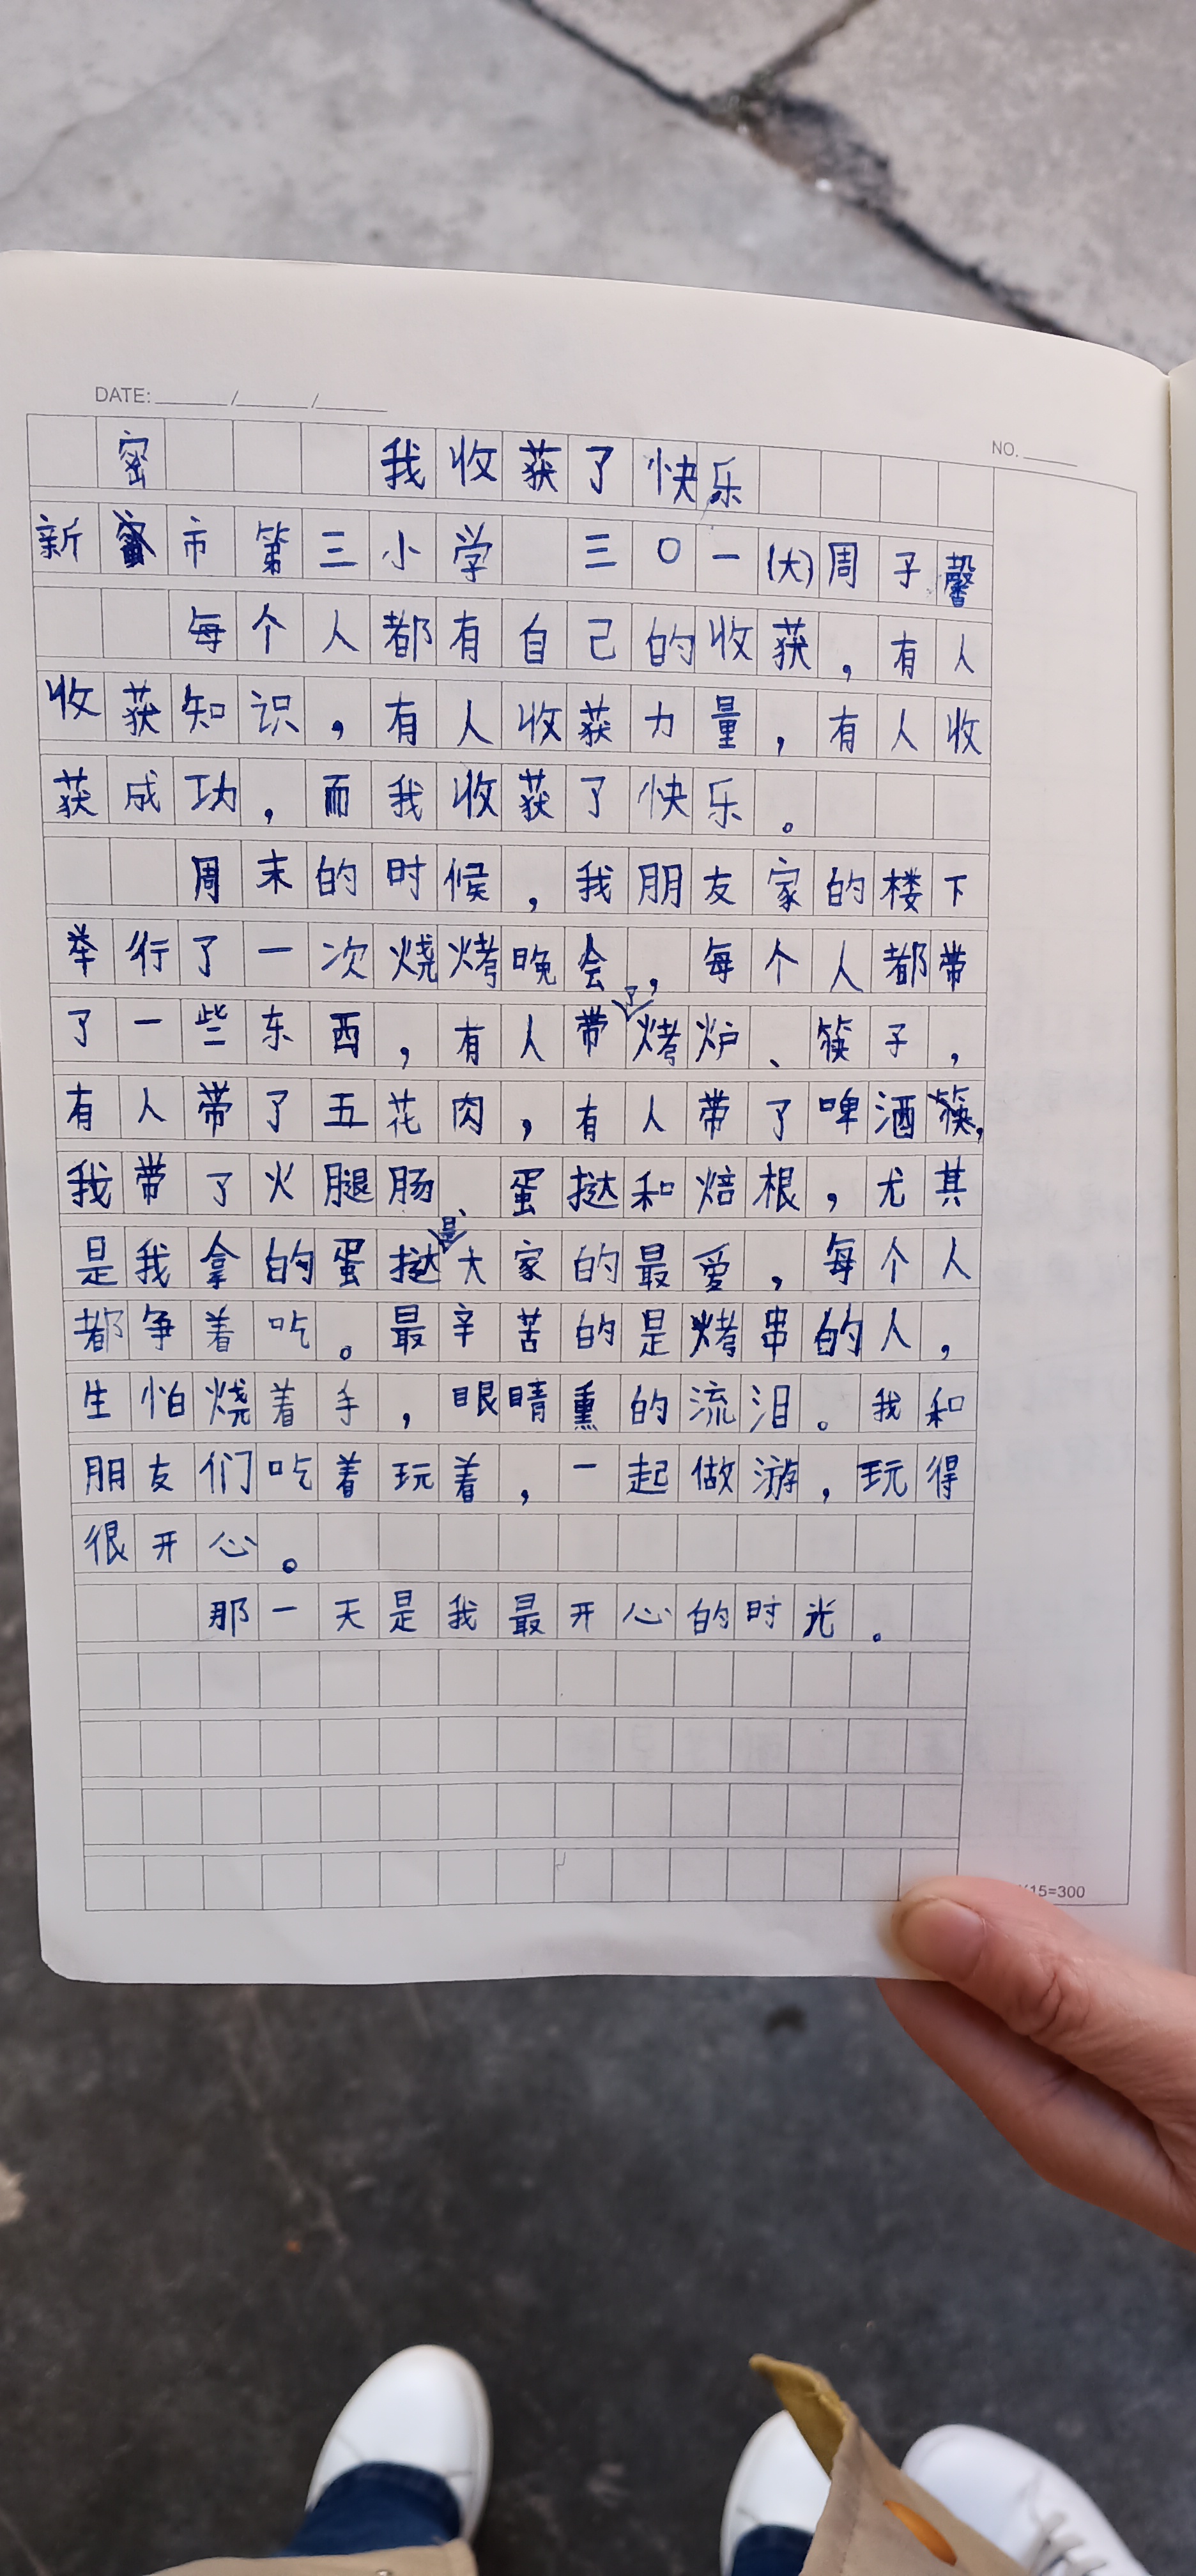 DATE: / /
NO.
密 我收获了快乐
新密市第三小学 三〇一(大)周子馨
每个人都有自己的收获，有人
收获知识，有人收获力量，有人收
获成功，而我收获了快乐。
周末的时候，我朋友家的楼下
举行了一次烧烤晚会，每个人都带
了一些东西，有人带了烤炉、筷子，
有人带了五花肉，有人带了啤酒，
我带了火腿肠、蛋挞和焙根，尤其
是我拿的蛋挞是大家的最爱，每个人
都争着吃。最辛苦的是烤串的人，
生怕烧着手，眼睛熏的流泪。我和
朋友们吃着玩着，一起做游，玩得
很开心。
那一天是我最开心的时光。
15=300